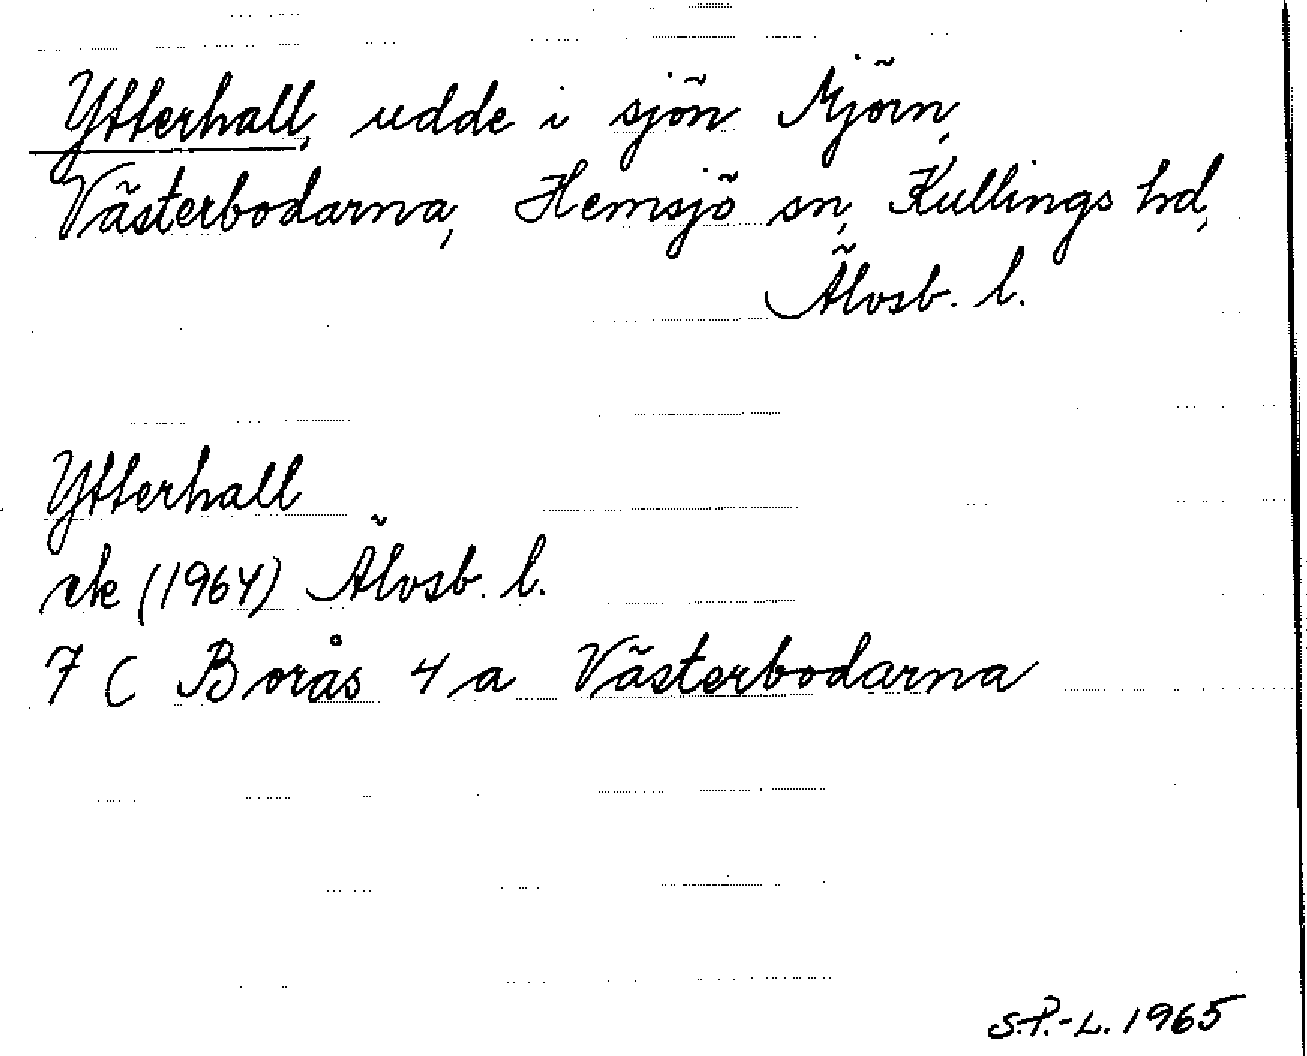 Ytterhall, udde i sjön Mjörn,
Västerbodarna, Hemsjö sn, Kullings hd,
Älvsb. l.
Ytterhall
rek (1964) Älvsb. l.
7 C Borås 4 a Västerbodarna
S.P.-L. 1965